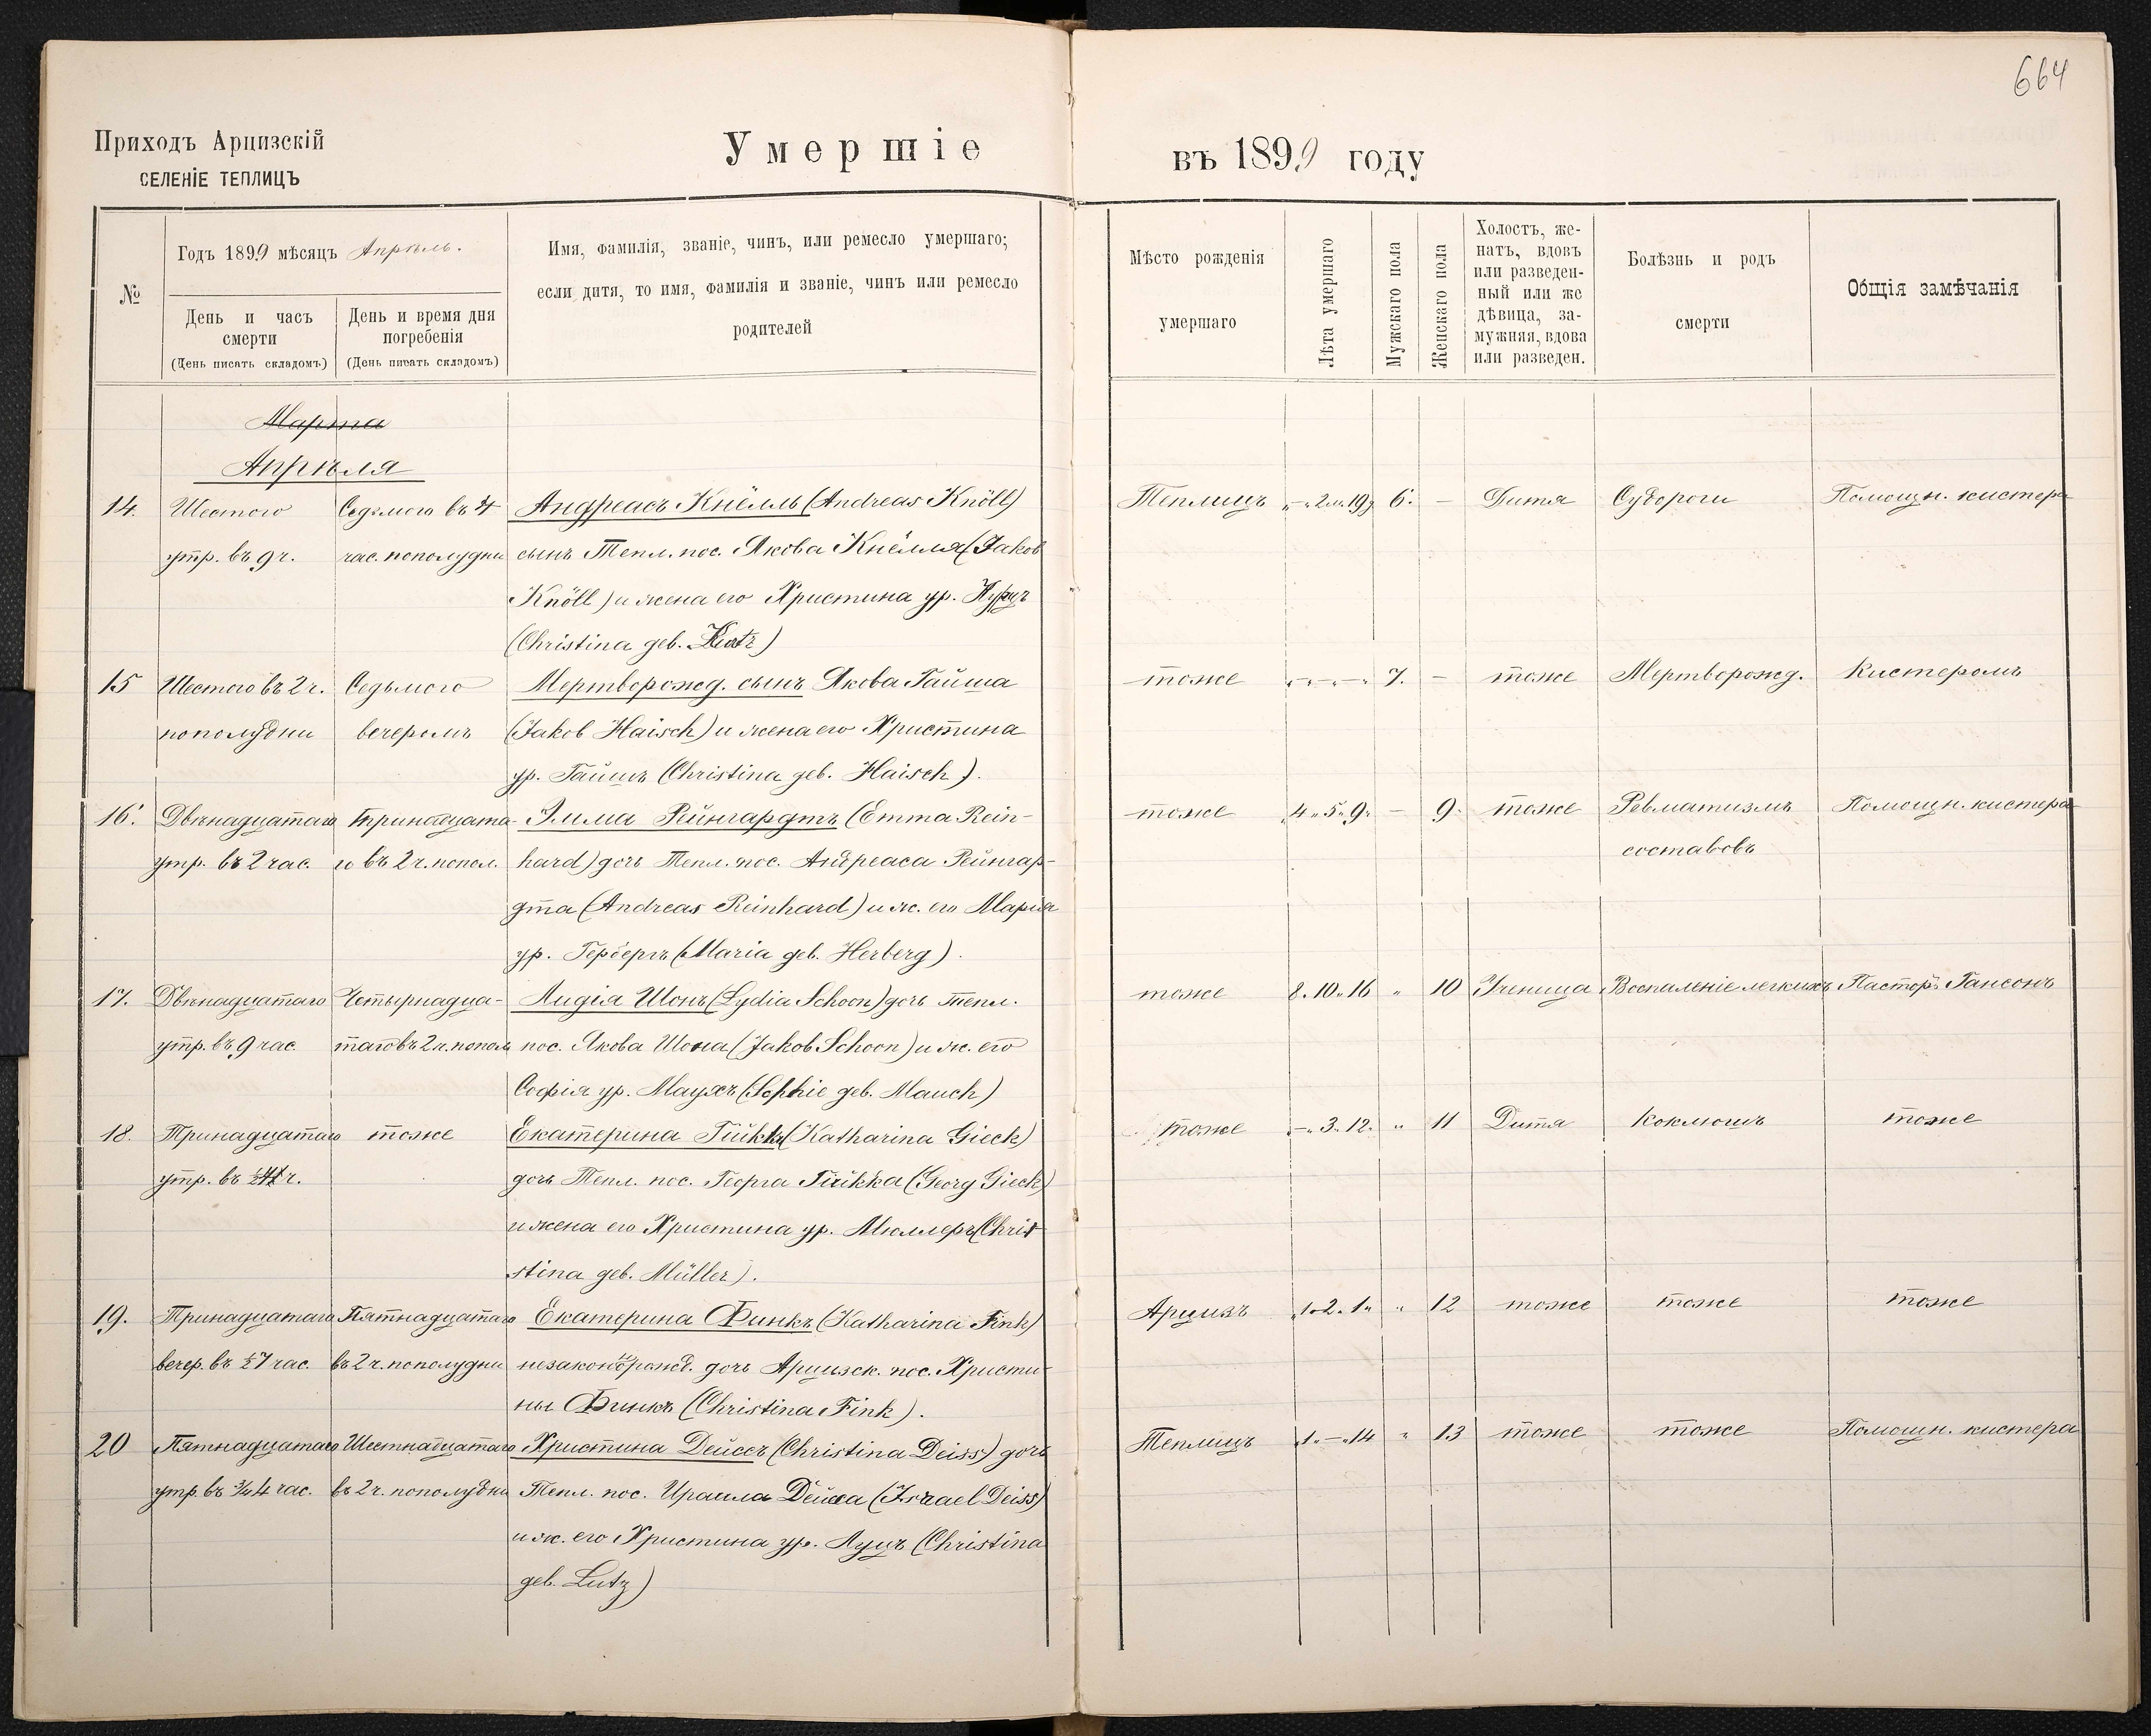 664
Приходъ Арцизскій
СЕЛЕНІЕ ТЕПЛИЦЪ
Умершіе
въ 1899 году
№
Годъ 1899 мѣсяцъ Апрѣль.
День и часъ смерти
(День писать складомъ)
День и время дня погребенія
(День писать складомъ)
Имя, фамилія, званіе, чинъ, или ремесло умершаго;
если дитя, то имя, фамилія и званіе, чинъ или ремесло
родителей
Мѣсто рожденія
умершаго
Лѣта умершаго
Мужскаго пола
Женскаго пола
Холостъ, же-
натъ, вдовъ
или разведен-
ный или же
дѣвица, за-
мужняя, вдова
или разведен.
Болѣзнь и родъ
смерти
Общія замѣчанія
Марта
Апрѣля
14. Шестого Седьмого въ 4 Андреасъ Кнёлль (Andreas Knöll) Теплицъ „-„2м.19д 6. - Дитя Судороги Помощн. кистера
утр. въ 9 ч. час. пополудни сынъ Тепл. пос. Якова Кнёлля (Jakob
Knöll) и жена его Христина ур.
(Christina geb.
15 Шестого въ 2 ч. Седьмого Мертворожд. сынъ Якова Гайша тоже „-„-„-„ 7. - тоже Мертворожд. Кистеромъ
пополудни вечеромъ (Jakob Haisch) и жена его Христина
ур. Гайшъ (Christina geb. Haisch).
16. Двѣнадцатаго Тринадцата- Эмма Рейнгардтъ (Emma Rein- тоже 4„5„9„ - 9. тоже Ревматизмъ Помощн. кистера
утр. въ 2 час. го въ 2 ч. попол. hard) дочь Тепл. пос. Андреаса Рейнгар- составовъ
дта (Andreas Reinhard) и ж. его Марія
ур. Гербергъ (Maria geb. Herberg).
17. Двѣнадцатаго Четырнадца- Лидія Шонъ (Lydia Schoon) дочь тепл. тоже 8.10.16 „ 10 Ученица Воспаленіе легкихъ Пасторъ Гансонъ
утр. въ 9 час. таго въ 2 ч. попол. пос. Якова Шона (Jakob Schoon) и ж. его
Софія ур. Маухъ (Sophie geb. Mauch)
18. Тринадцатаго тоже Екатерина Гіикъ (Katharina Gieck) тоже -„3„12„ „ 11 Дитя Коклюшъ тоже
утр. въ ч. дочь Тепл. пос. Георга Гіикка (Georg Gieck)
и жена его Христина ур. Мюллеръ (Chri-
stina geb. Müller).
19. Тринадцатаго Пятнадцатаго Екатерина Финкъ (Katharina Fink) Арцизъ „1„2„1„ „ 12 тоже тоже тоже
вечер. въ ½7 час. въ 2 ч. пополудни незаконнорожд. дочь Арцизск. пос. Христи-
ны Финкъ (Christina Fink).
20 Пятнадцатаго Шестнадцатаго Христина Дейссъ (Christina Deiss) дочь Теплицъ „1„-„14 „ 13 тоже тоже Помощн. кистера
утр. въ ¾4 час. въ 2 ч. пополудни Тепл. пос. Ираила Дейсса (Israel Deiss)
и ж. его Христина ур. Луцъ (Christina
geb. Lutz)